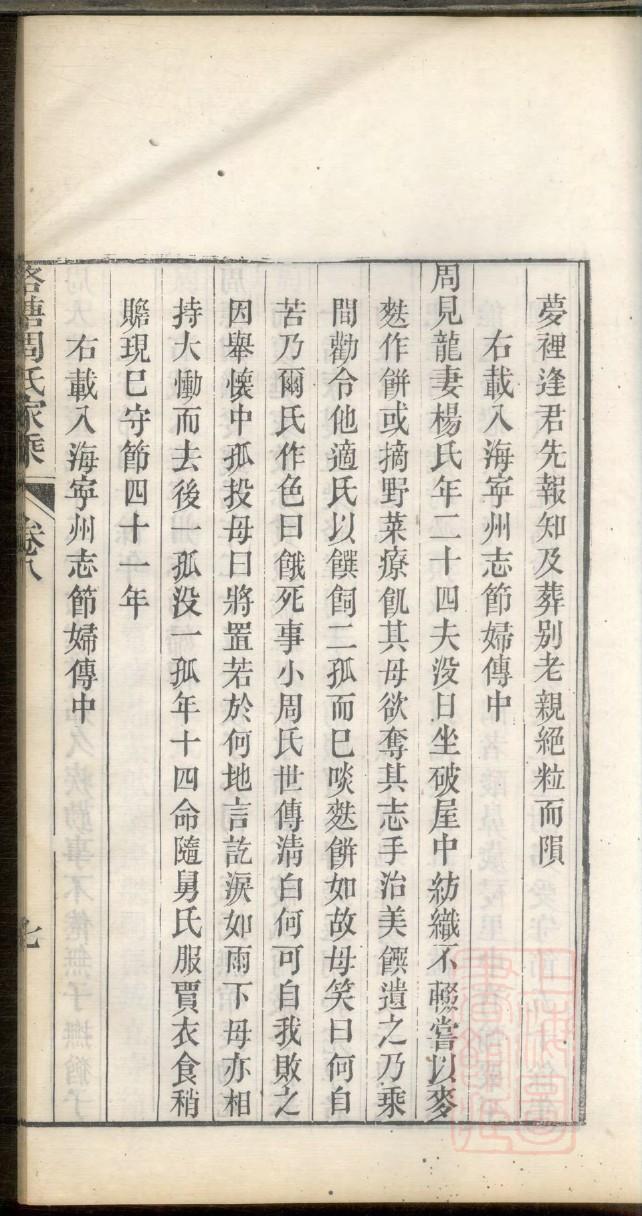 夢裡逢君先報知及葬別老親絕粒而隕
右載入海寧州志節婦傳中
周見龍妻楊氏年二十四夫没日坐破屋中紡織不輟嘗以麥
麩作餅或摘野菜療飢其母欲奪其志手治美饌遺之乃乘
間勸令他適氏以饌飼二孤而巳啖麩餅如故母笑曰何自
苦乃爾氏作色曰餓死事小周氏世傳淸白何可自我敗之
因舉懷中孤投母曰將置若於何地言訖淚如雨下母亦相
持大慟而去後一孤没一孤年十四命隨舅氏服賈衣食稍
贍現巳守節四十一年
右載入海寧州志節婦傳中
周氏家乘
卷八
七